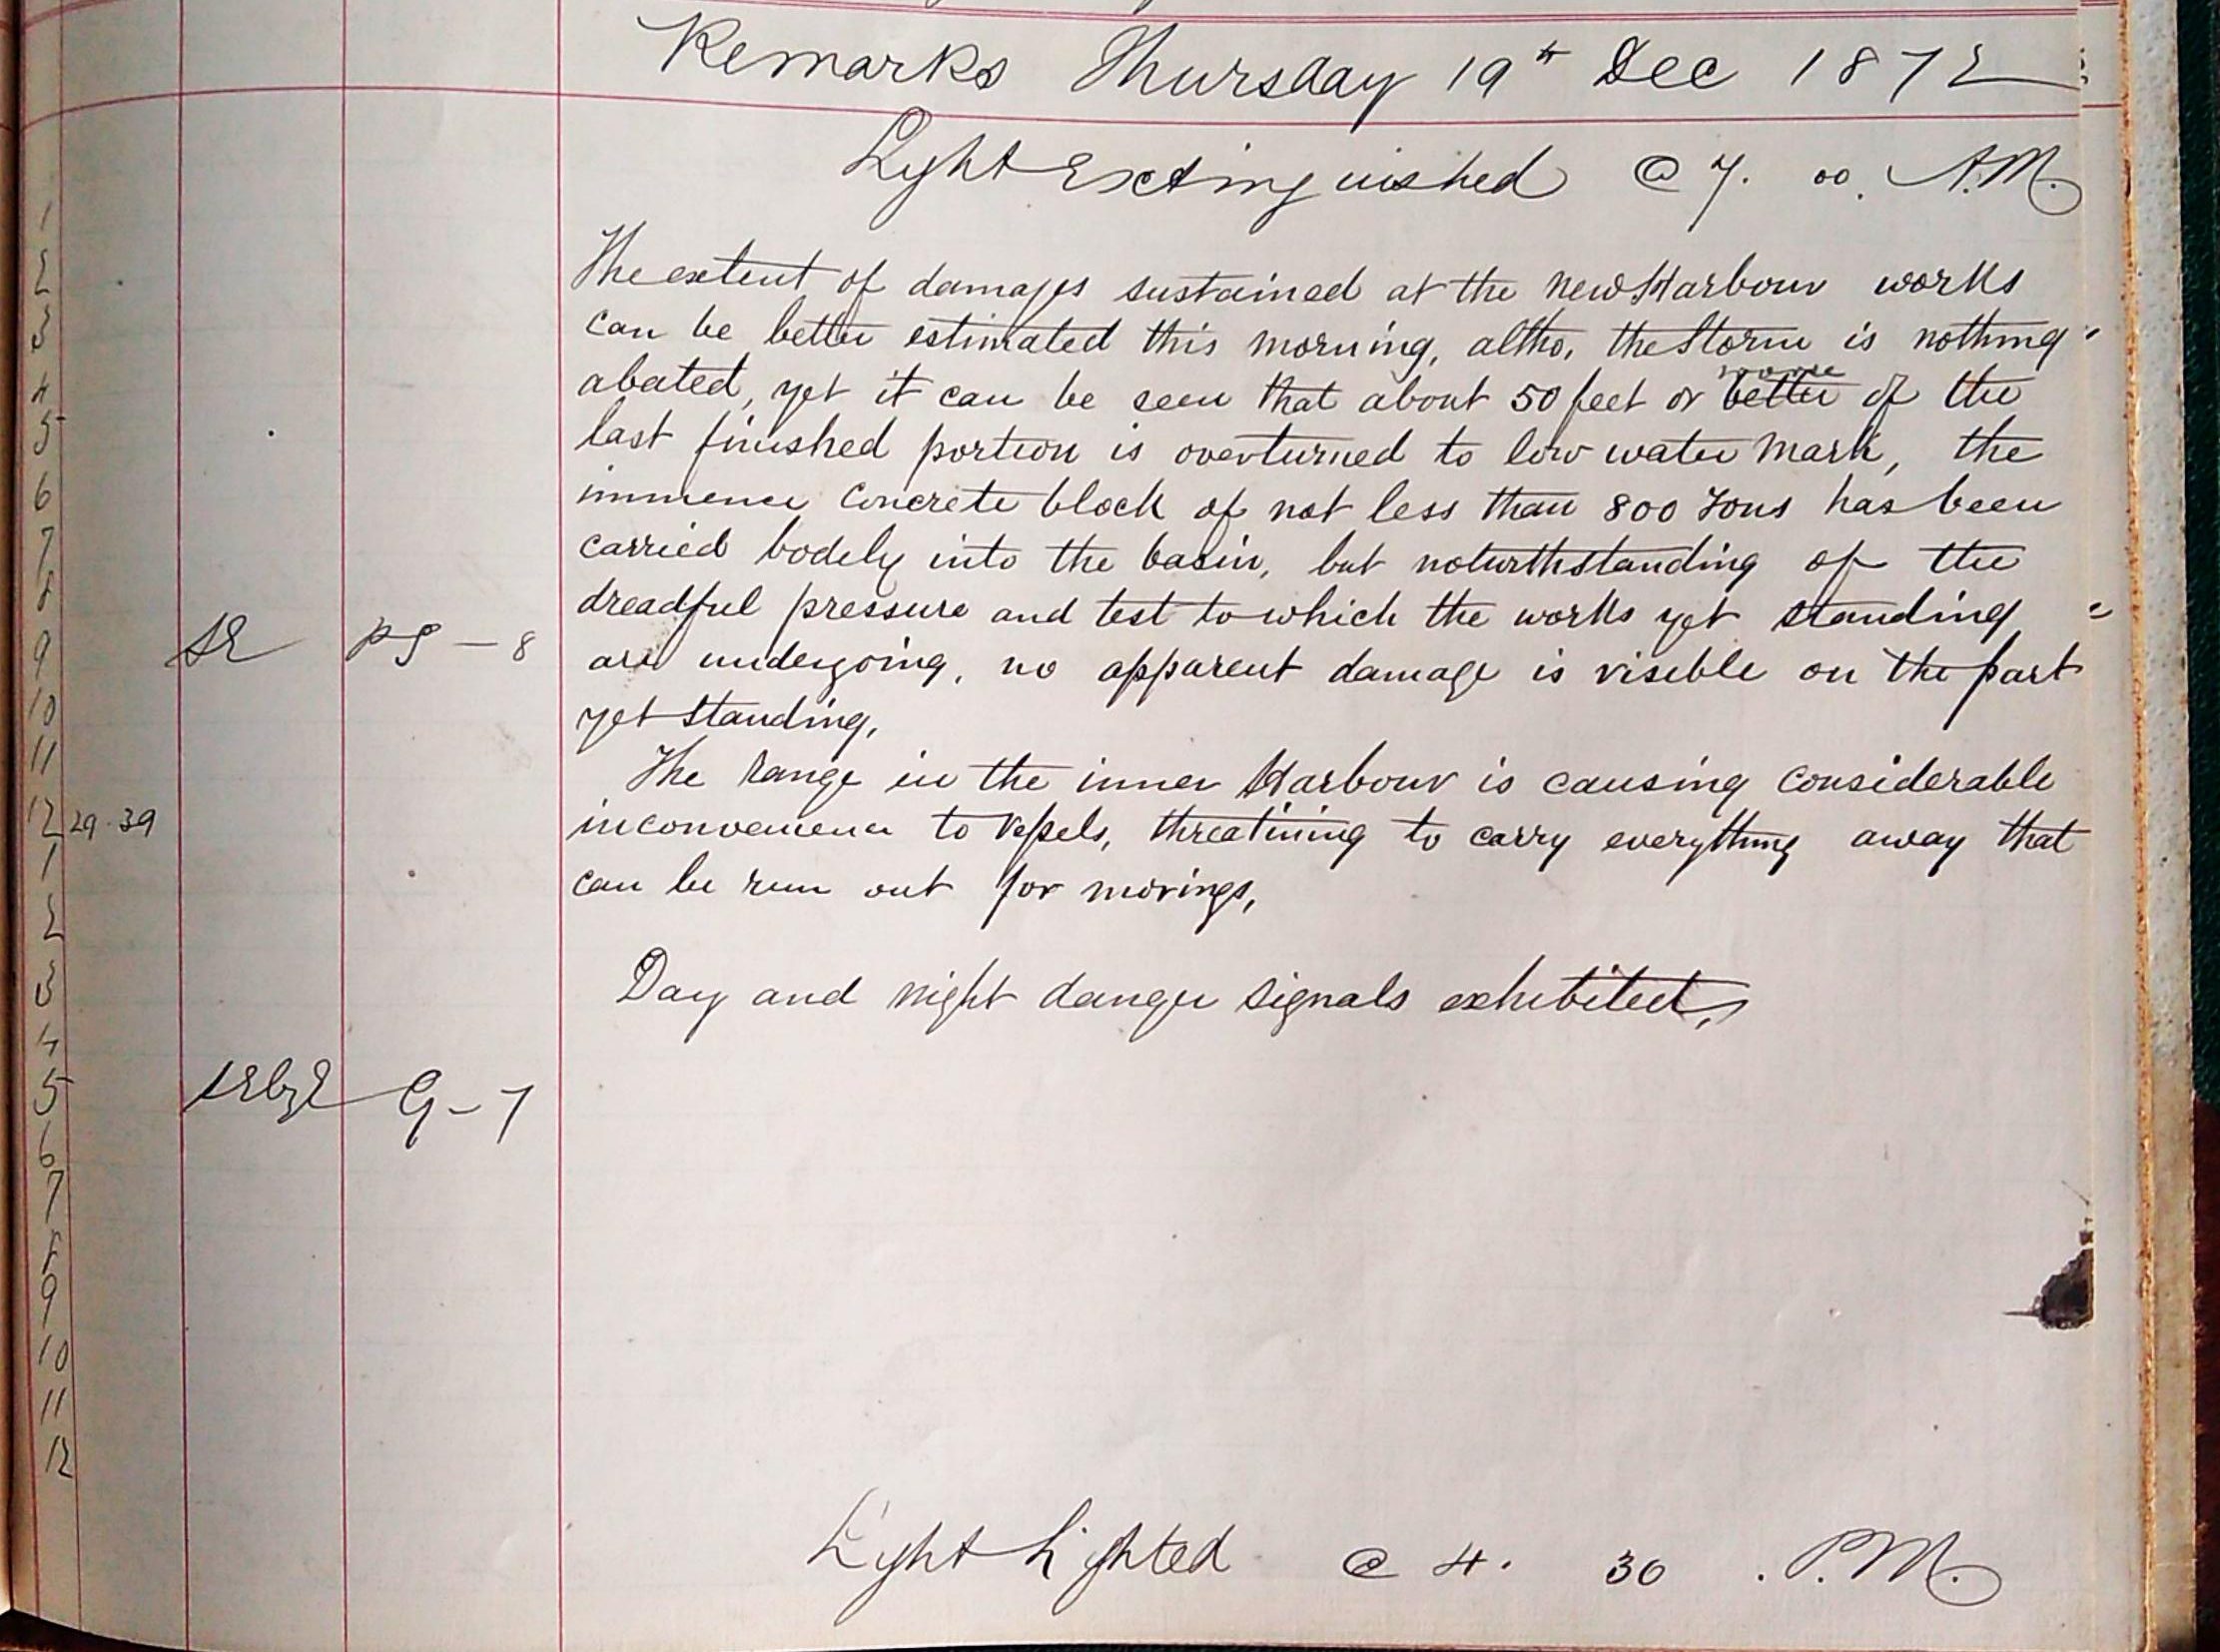 Remarks Thursday 19th Dec 1872
Light Extinguished @ 7. 00. A.M.
1
2
The extent of damages sustained at the new Harbour works
3
can be better estimated this morning, altho, the Storm is nothing
4
abated, yet it can be seen that about 50 feet or better more of the
5
last finished portion is overturned to low water mark, the
6
immence concrete block of not less than 800 Tons has been
7
carried bodely into the basin, but noturthstanding of the
8
dreadful pressure and test to which the works yet standing
9 SE PS - 8 are undergoing, no apparent damage is viseble on the part
10
yet standing,
11
The range in the inner Harbour is causing considerable
12 29.39 inconvenience to Vessels, threatining to carry everything away that
1
can be run out for morings,
2
3
Day and night danger signals exhibited,
4
5 SEbyE G - 7
6
7
8
9
10
11
12
Light Lighted @ 4. 30 . P.M.